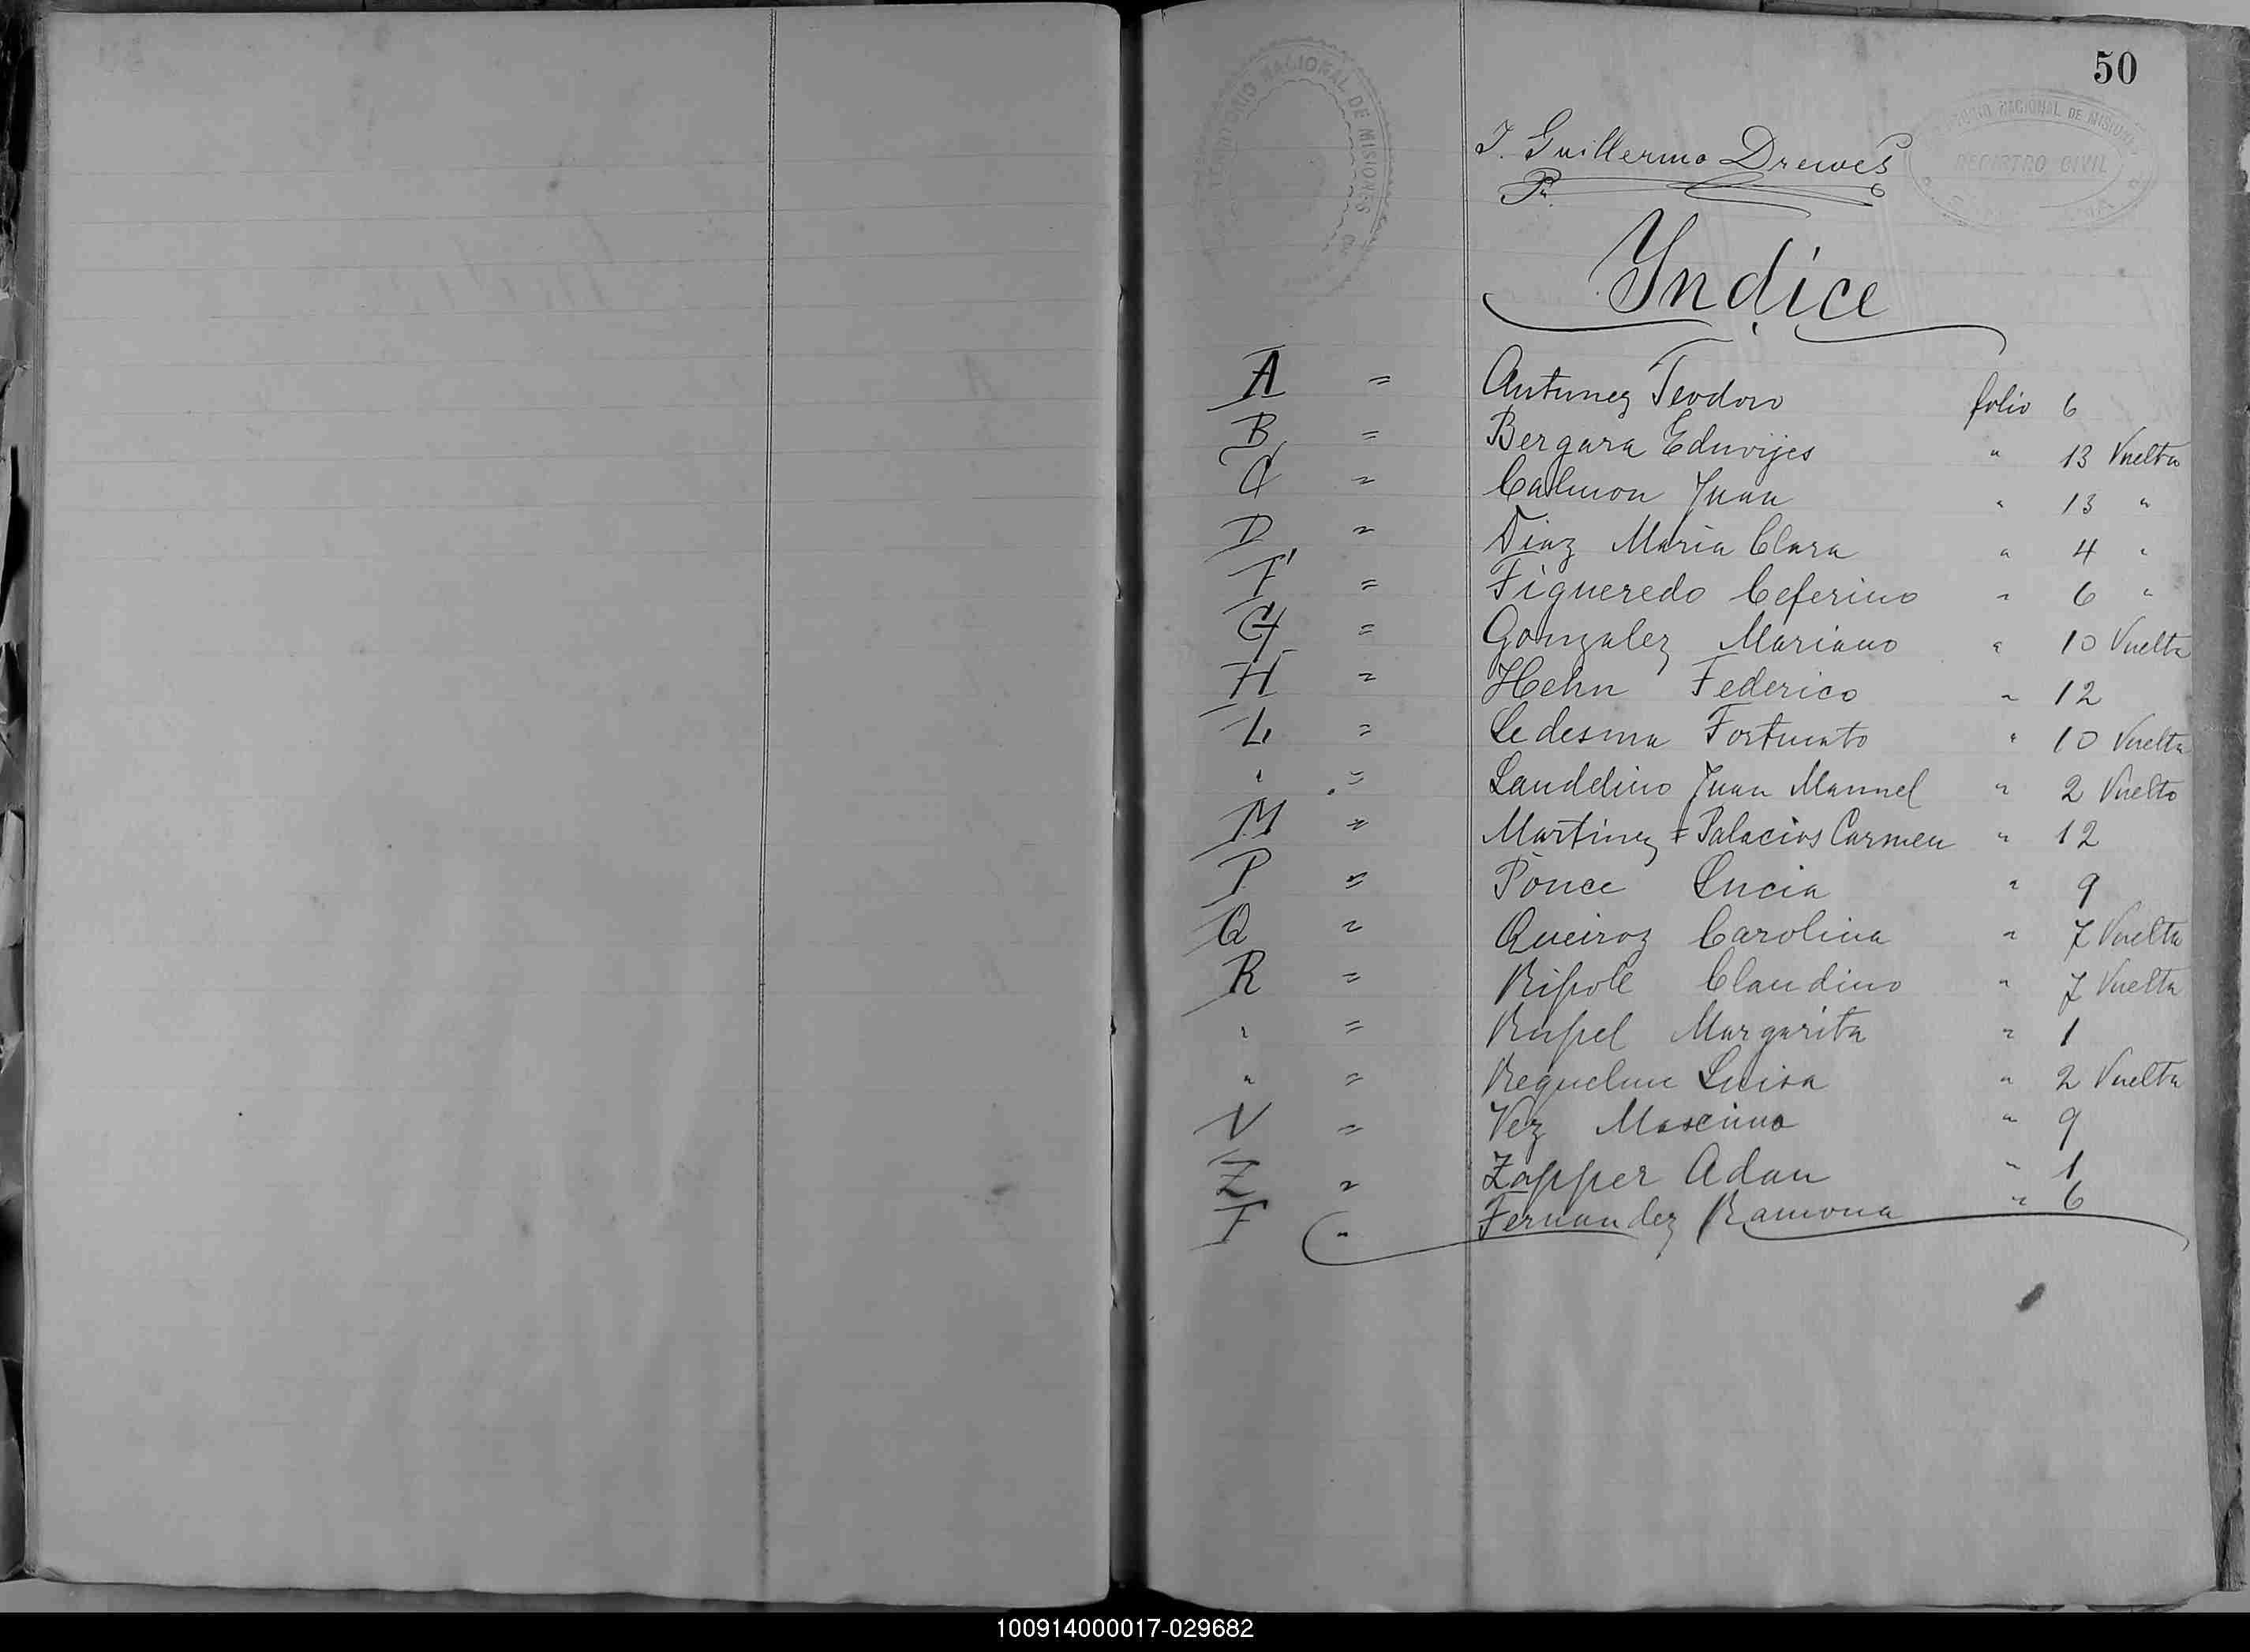 50
TERRITORIO NACIONAL DE MISIONES
NACIONAL DE MISIONES
REGISTRO CIVIL
J. Guillermo Drewes
Yndice
A = Antunez Teodoro folio 6
B = Bergara Eduvijes " 13 Vuelta
C = Calmon Juan " 13 "
D = Diaz Maria Clara " 4 "
F = Figueredo Ceferino " 6 "
G = Gonzalez Mariano " 10 Vuelta
H = Hehn Federico " 12
L = Ledesma Fortunato " 10 Vuelta
" = Laudelino Juan Manuel " 2 Vuelto
M = Martinez = Palacios Carmen " 12
P = Ponce Lucia " 9
Q = Queiroz Carolina " 7 Vuelta
R = Ripole Claudino " 7 Vuelta
" = Rupel Margarita " 1
" = Requelme Luisa " 2 Vuelta
V = Vez Mascimo " 9
Z = Zapper Adan " 1
F " Fernandez Ramona " 6
100914000017-029682